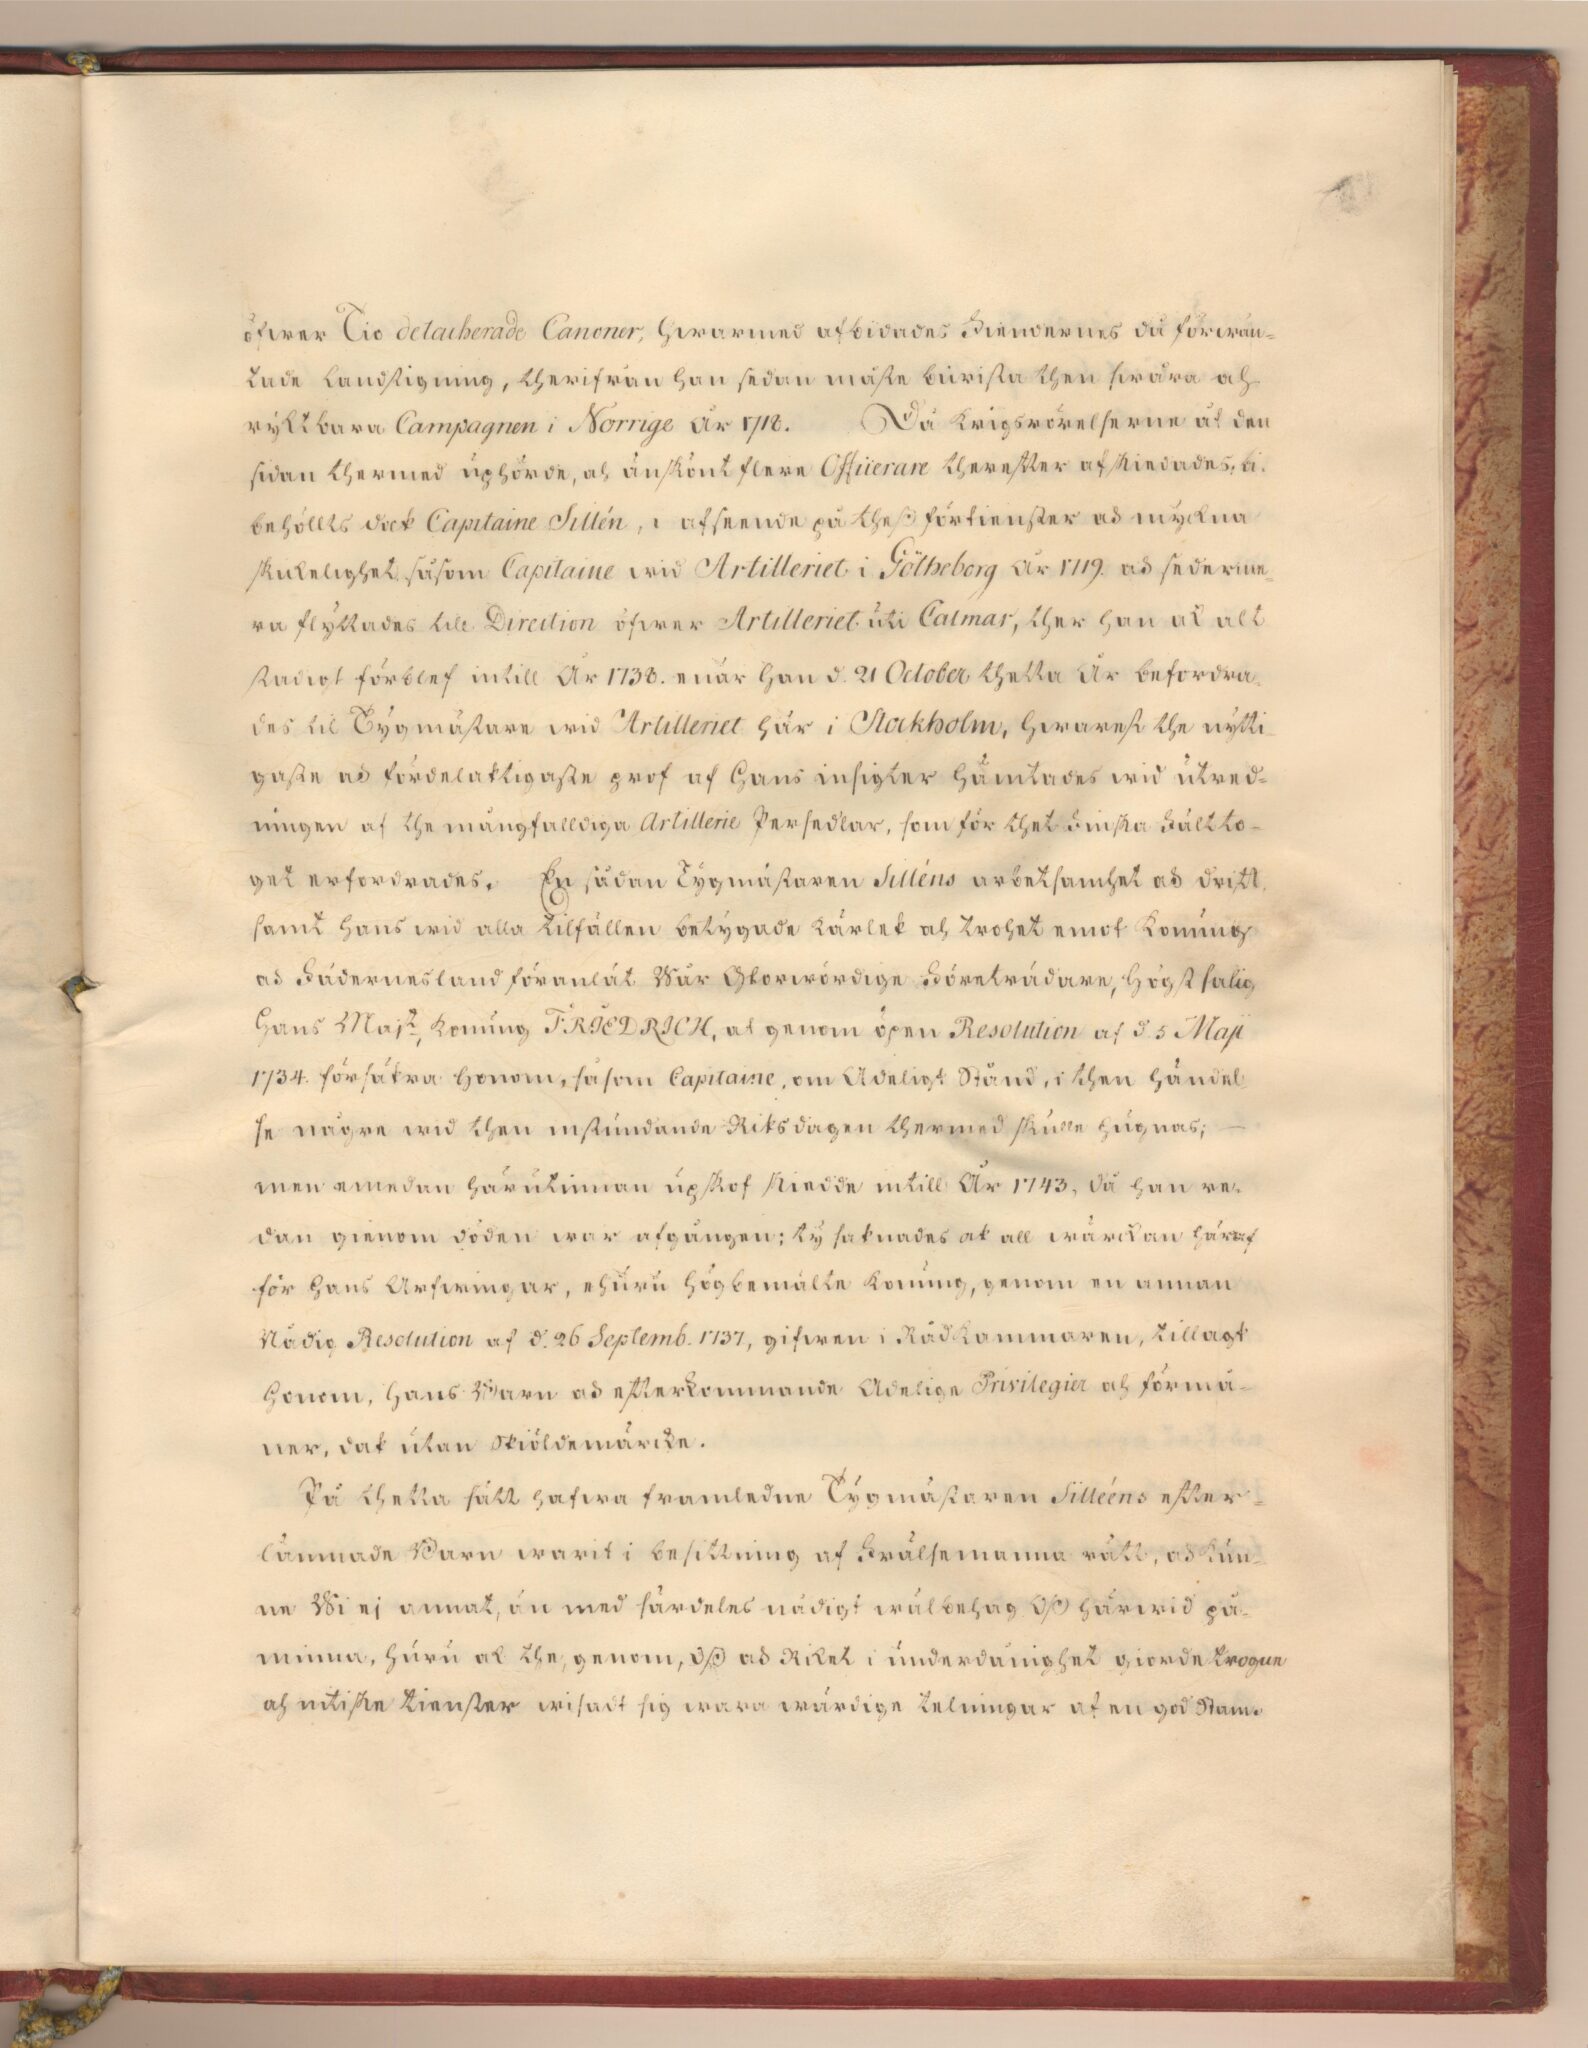 öfwer Tio detacherade Canoner, hwarmed afbidades Fiendernes då förwän-
tade Landstigning, therifrån han sedan måste biwista then swåra och
ryktbara Campagnen i Norrige År 1718. Då krigsrörelserne åt den
sidan thermed uphörde, och änskönt flere Officerare therefter afskiedades, bi-
behölts dock Capitaine Sillén, i afseende på thess förtienster och myckna
skickelighet, såsom Capitaine wid Artilleriet i Götheborg År 1719. och sederme-
ra flyttades till Direction öfwer Artilleriet uti Calmar, ther han ock alt
stadigt förblef intill År 1738. enär han d. 21 October thetta År befordra-
des til Tygmästare wid Artilleriet här i Stockholm, hwarest the nytti-
gaste och fördelaktigaste prof af Hans insigter hämtades wid utred-
ningen af the mångfalldiga Artillerie Persedlar, som för thet Finska Fältto-
get erfordrades. En sådan Tygmästaren Silléns arbetsamhet och drift,
samt Hans wid alla tilfällen betygade kärlek och trohet emot Konung
och Fädernesland föranlät Wår Glorwördige Företrädare, Högst salig
Hans Maj:t, Konung FRIEDRICH, at genom öpen Resolution af d. 5 Maji
1734. försäkra Honom, såsom Capitaine, om Adeligt Stånd, i then händel-
se några wid then instundande Riksdagen thermed skulle hugnas; —
men emedan härutinnan upskof skiedde intill År 1743, då han re-
dan gienom döden war afgången; ty saknades ock all wärckan häraf
för Hans Arfwingar, ehuru Högbemälte Konung, genom en annan
Nådig Resolution af d. 26 Septemb. 1737, gifwen i RådKammaren, tillagt
Honom, Hans Barn och efterkommande Adelige Privilegier och förmå-
ner, dock utan Skiöldemärcke.
På thetta sätt hafwa framledne Tygmästaren Silléens efter-
lämnade Barn warit i besittning af Frälsemanna rätt, och kun-
ne Wi ej annat, än med särdeles nådigt wälbehag Oss härwid på-
minna, huru ock the, genom, Oss och Riket i underdånighet giorde trogne
och nitiske tienster wisadt sig wara wärdige telningar af en god Stam.